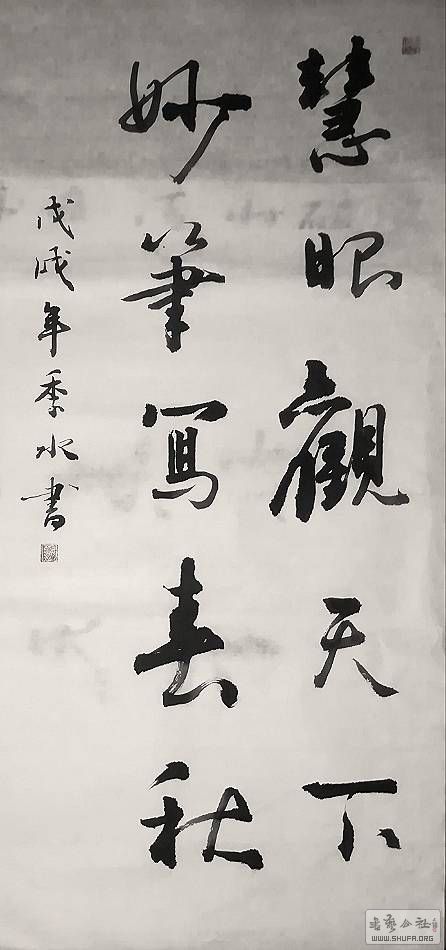 慧眼觀天下
妙筆寫春秋
戊戌年季水書
書藝公社
WWW.SHUFA.ORG